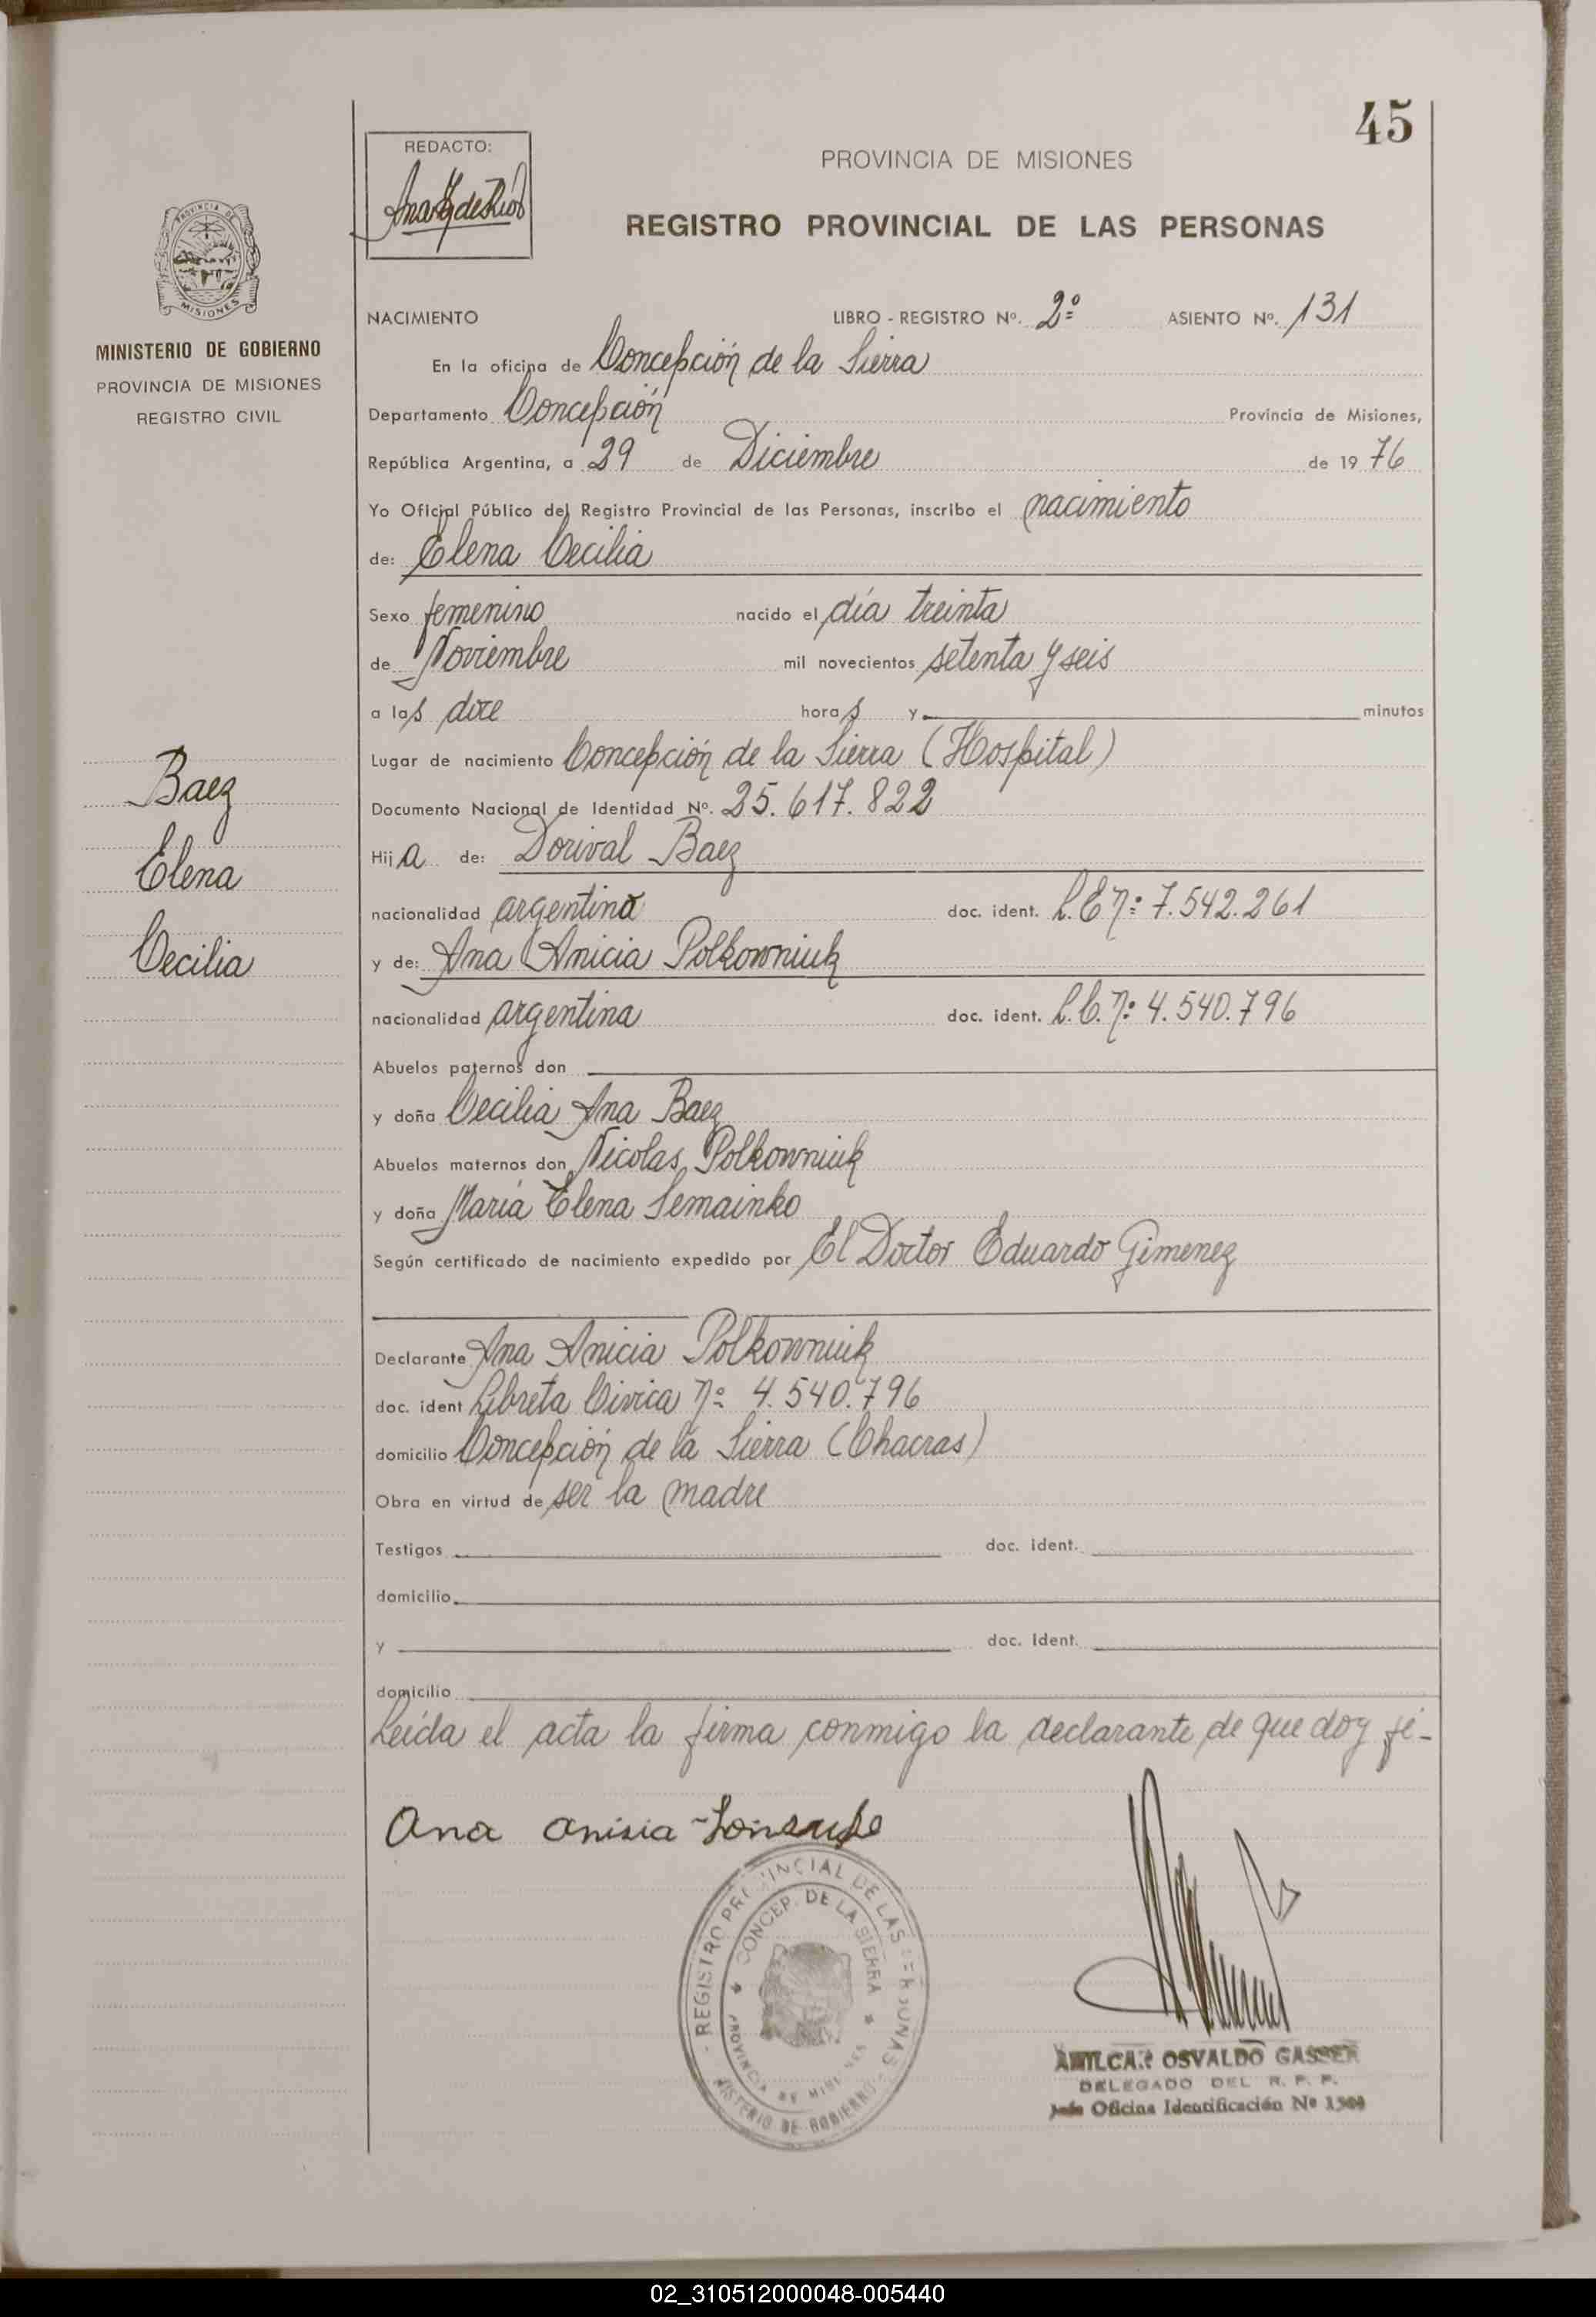 45
REDACTO:
PROVINCIA DE MISIONES
REGISTRO PROVINCIAL DE LAS PERSONAS
PROVINCIA DE
MISIONES
MINISTERIO DE GOBIERNO
PROVINCIA DE MISIONES
REGISTRO CIVIL
NACIMIENTO LIBRO - REGISTRO Nº. 2º ASIENTO Nº. 131
En la oficina de Concepción de la Sierra
Departamento Concepción Provincia de Misiones,
República Argentina, a 29 de Diciembre de 19 76
Yo Oficial Público del Registro Provincial de las Personas, inscribo el nacimiento
de: Elena Cecilia
Sexo femenino nacido el día treinta
de Noviembre mil novecientos setenta y seis
a las doce horas y minutos
Lugar de nacimiento Concepción de la Sierra (Hospital)
Documento Nacional de Identidad Nº. 25.617.822
Hija de: Dorival Baez
nacionalidad argentina doc. ident. L.E nº: 7.542.261
y de: Ana Anicia Polkowniuk
nacionalidad argentina doc. ident. L.C. nº: 4.540.796
Abuelos paternos don
y doña Cecilia Ana Baez
Abuelos maternos don Nicolas Polkowniuk
y doña María Elena Semainko
Según certificado de nacimiento expedido por El Doctor Eduardo Gimenez
Declarante Ana Anicia Polkowniuk
doc. ident Libreta Civica nº 4.540.796
domicilio Concepción de la Sierra (Chacras)
Obra en virtud de ser la madre
Testigos doc. ident.
domicilio
y doc. ident.
domicilio
Leída el acta la firma conmigo la declarante de que doy fé-
Baez
Elena
Cecilia
Ana Anisia
REGISTRO PROVINCIAL DE LAS PERSONAS
CONCEP. DE LA SIERRA
PROVINCIA DE MISIONES
MINISTERIO DE GOBIERNO
AMILCAR OSVALDO GASSER
DELEGADO DEL R. P. P.
Jefe Oficina Identificación Nº
02_310512000048-005440